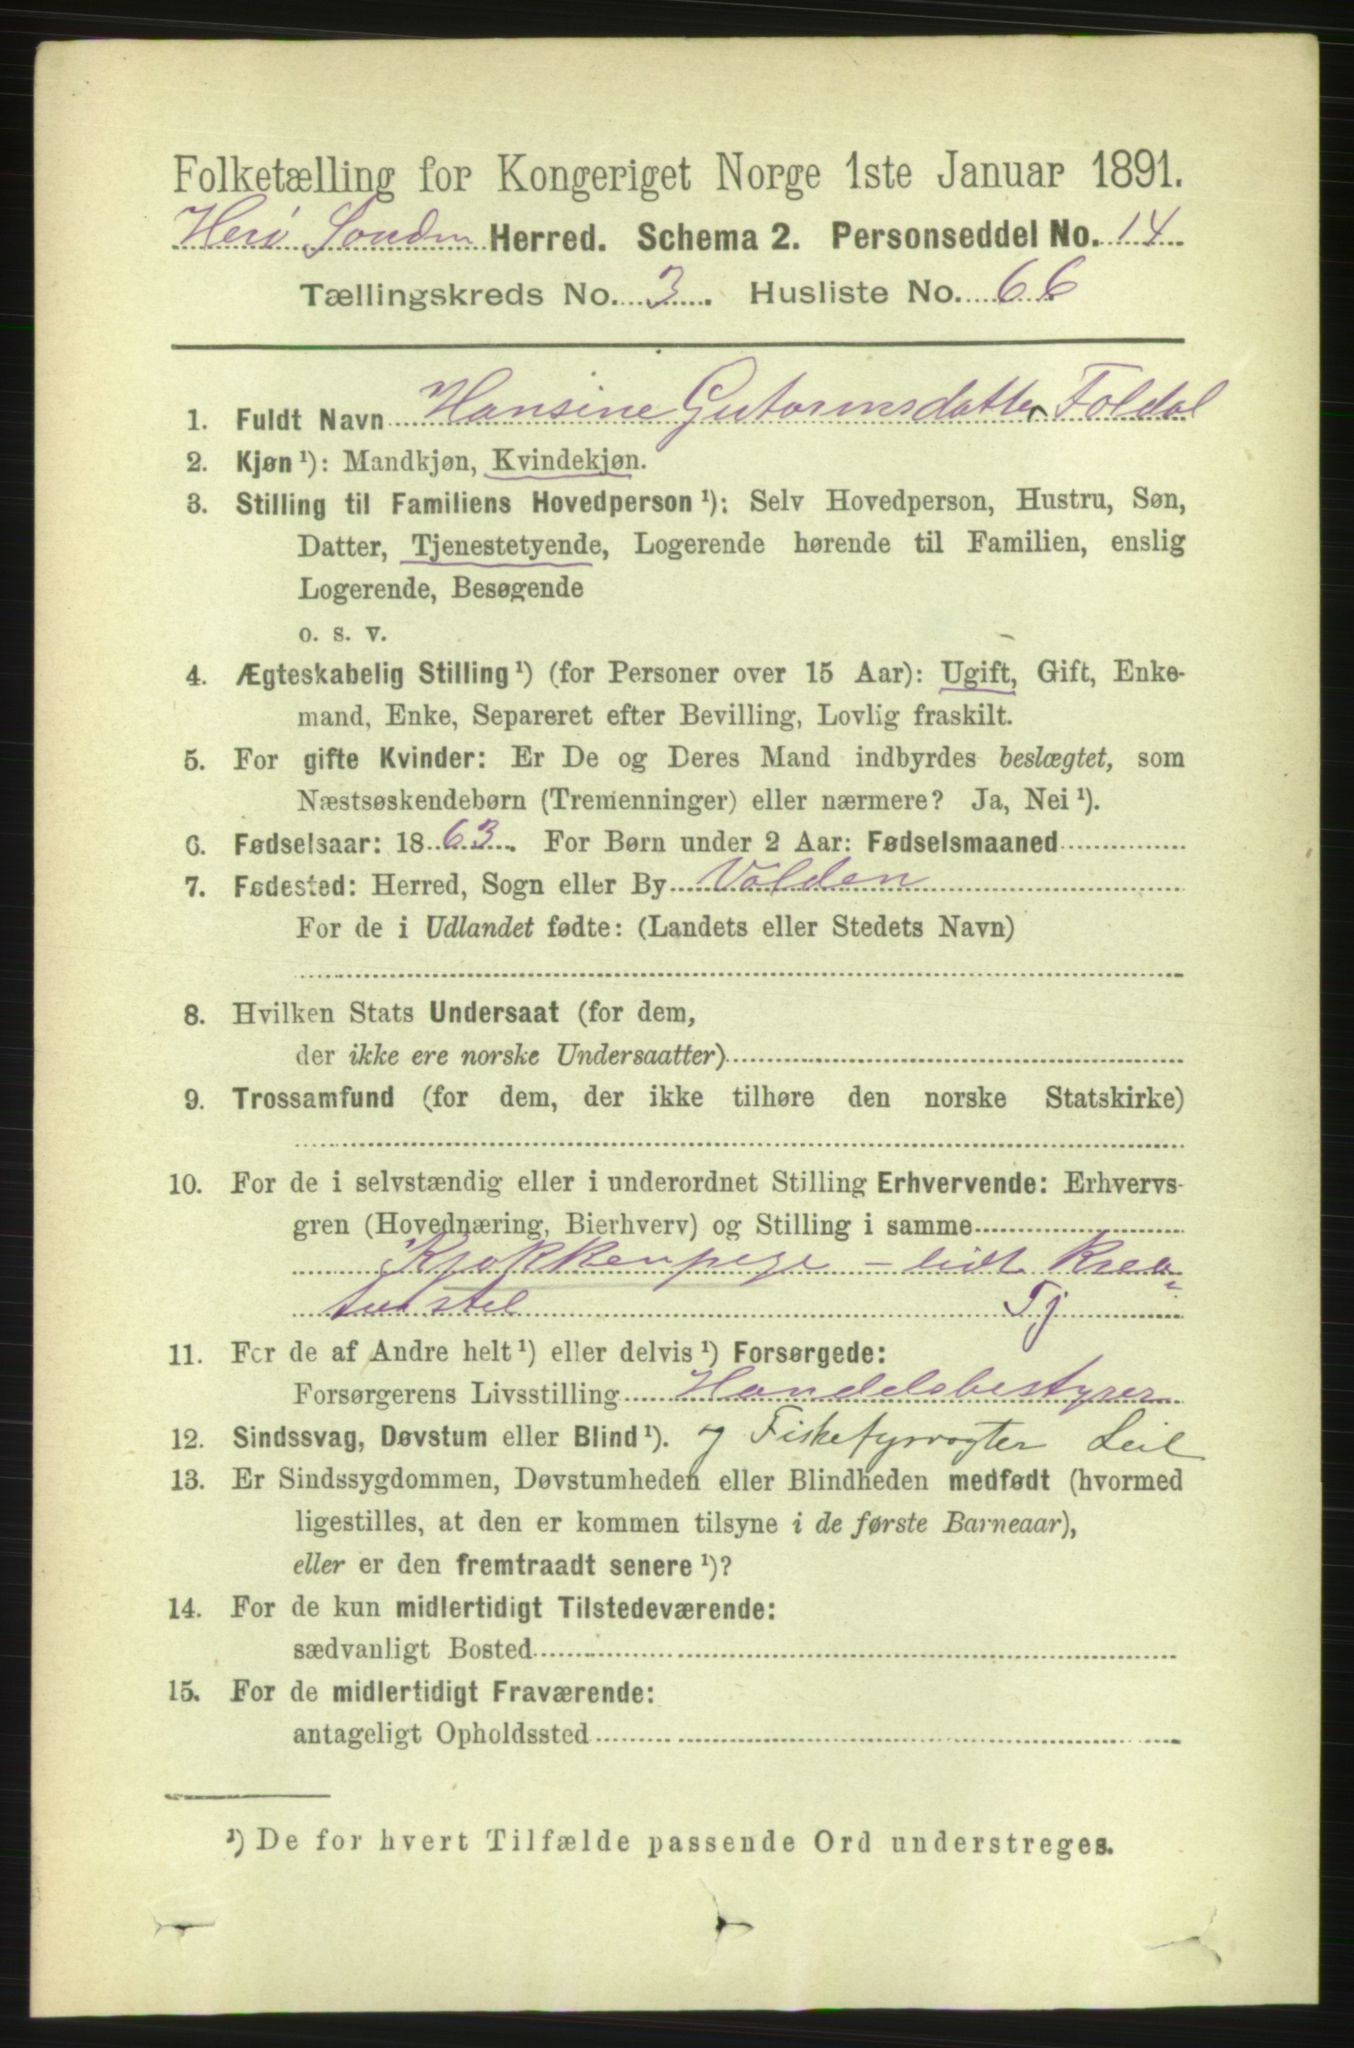 Folketælling for Kongeriget Norge 1ste Januar 1891.
Herø Søndm Herred. Schema 2. Personseddel No. 14
Tællingskreds No. 3. Husliste No. 66
1. Fuldt Navn Hansine Gutormsdatter Foldal
2. Kjøn ¹): Mandkjøn, Kvindekjøn.
3. Stilling til Familiens Hovedperson ¹): Selv Hovedperson, Hustru, Søn,
Datter, Tjenestetyende, Logerende hørende til Familien, enslig
Logerende, Besøgende
o. s. v.
4. Ægteskabelig Stilling ¹) (for Personer over 15 Aar): Ugift, Gift, Enke-
mand, Enke, Separeret efter Bevilling, Lovlig fraskilt.
5. For gifte Kvinder: Er De og Deres Mand indbyrdes beslægtet, som
Næstsøskendebørn (Tremenninger) eller nærmere? Ja, Nei ¹).
6. Fødselsaar: 1863. For Børn under 2 Aar: Fødselsmaaned
7. Fødested: Herred, Sogn eller By Volden
For de i Udlandet fødte: (Landets eller Stedets Navn)
8. Hvilken Stats Undersaat (for dem,
der ikke ere norske Undersaatter)
9. Trossamfund (for dem, der ikke tilhøre den norske Statskirke)
10. For de i selvstændig eller i underordnet Stilling Erhvervende: Erhvervs-
gren (Hovednæring, Bierhverv) og Stilling i samme
Kjøkkenpige – lidt Krea-
turstel Tj
11. For de af Andre helt ¹) eller delvis ¹) Forsørgede:
Forsørgerens Livsstilling Handelsbestyrer
12. Sindssvag, Døvstum eller Blind ¹). og Fiskefyrvogter
13. Er Sindssygdommen, Døvstumheden eller Blindheden medfødt (hvormed
ligestilles, at den er kommen tilsyne i de første Barneaar),
eller er den fremtraadt senere ¹)?
14. For de kun midlertidigt Tilstedeværende:
sædvanligt Bosted
15. For de midlertidigt Fraværende:
antageligt Opholdssted
¹) De for hvert Tilfælde passende Ord understreges.